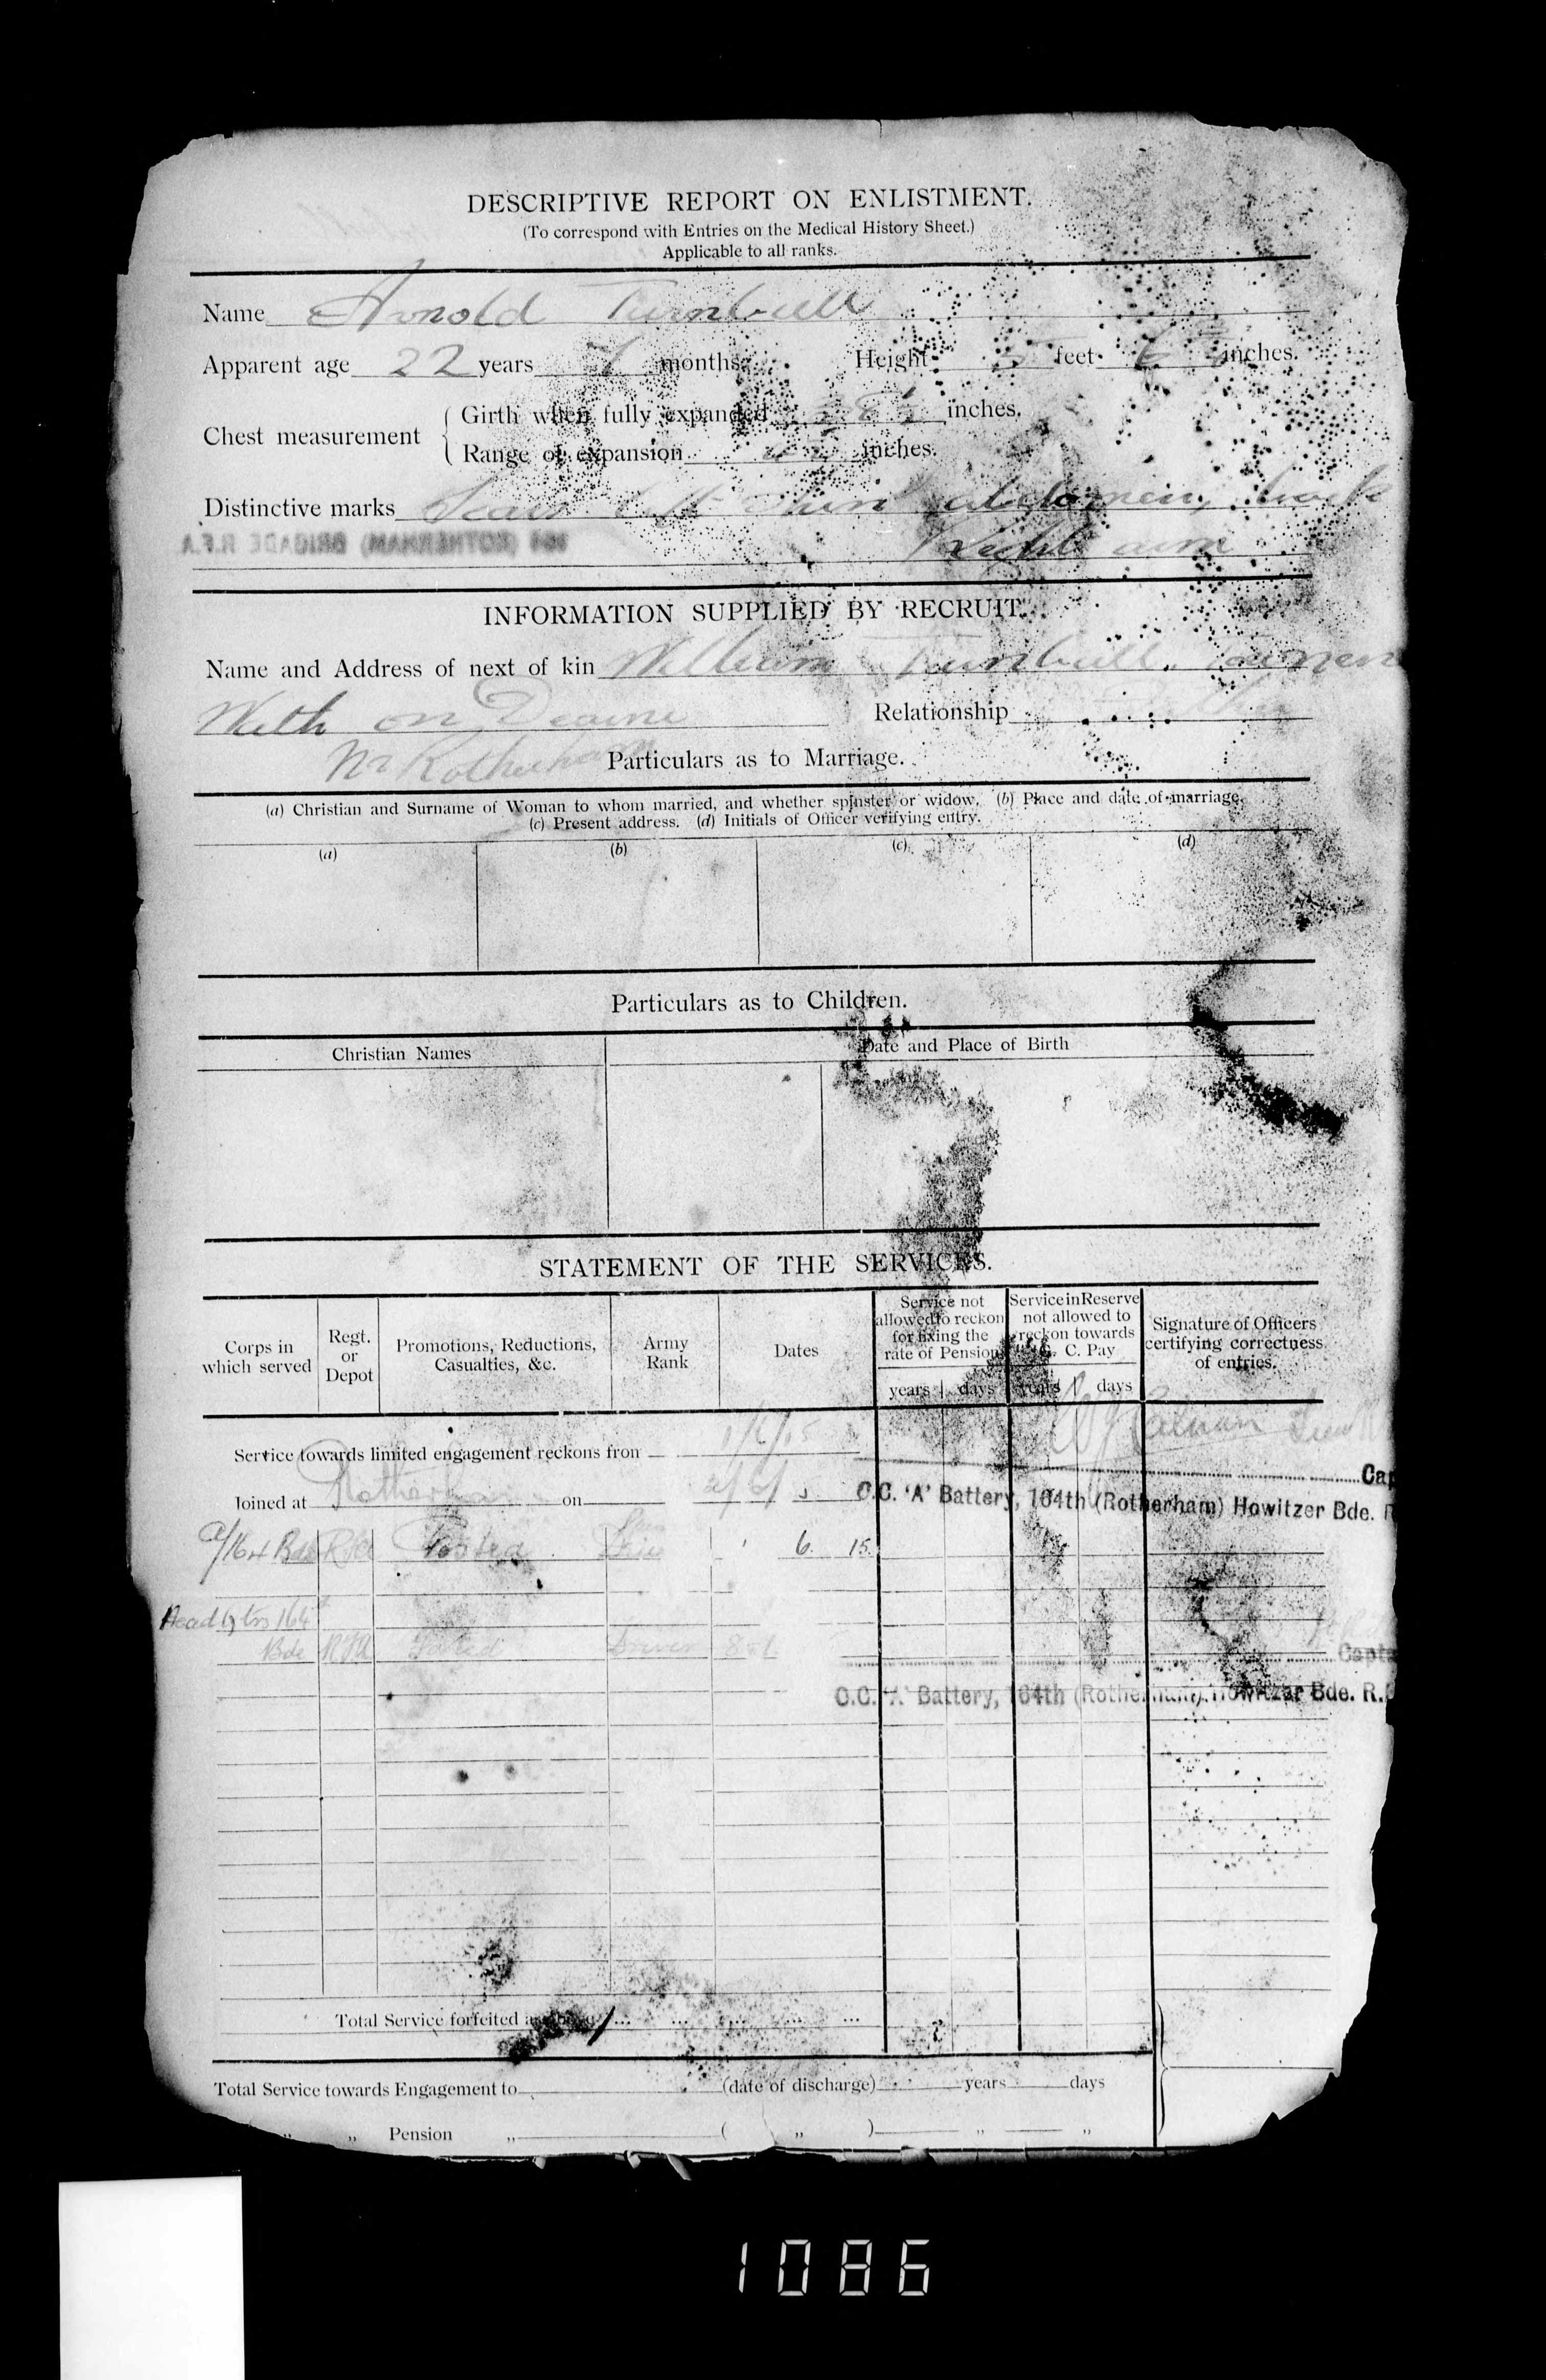 DESCRIPTIVE REPORT ON ENLISTMENT.
(To correspond with Entries on the Medical History Sheet.)
Applicable to all ranks.
Name Arnold Turnbull
Apparent age 22 years 7 months. Height 5 feet 6 inches.
Chest measurement
Girth when fully expanded 38½ inches.
Range of expansion inches.
Distinctive marks Scars left shin abdomen, back
Right arm
164 (ROTHERHAM) BRIGADE R.F.A.
INFORMATION SUPPLIED BY RECRUIT.
Name and Address of next of kin William Turnbull.
Wath on Dearne Relationship Father
Nr Rotherham
Particulars as to Marriage.
(a) Christian and Surname of Woman to whom married, and whether spinster or widow. (b) Place and date of marriage.
(c) Present address. (d) Initials of Officer verifying entry.
(a) (b) (c) (d)
Particulars as to Children.
Christian Names Date and Place of Birth
STATEMENT OF THE SERVICES.
Corps in which served
Regt. or Depot
Promotions, Reductions, Casualties, &c.
Army Rank
Dates
Service not allowed to reckon for fixing the rate of Pension
years days
Service in Reserve not allowed to reckon towards G. C. Pay
years days
Signature of Officers certifying correctness of entries.
Service towards limited engagement reckons from 1/6/15
Cap
Joined at Rotherham on 2/6/15
O.C. 'A' Battery, 164th (Rotherham) Howitzer Bde. R
A/164 Bde RFA Posted 1 6 15
Head Qtrs 164
Bde RFA Posted Driver
Capta
O.C. 'A' Battery, 164th (Rotherham) Howitzer Bde. R.
Total Service forfeited as above ... ... ... ... ...
Total Service towards Engagement to (date of discharge) years days
„ „ Pension „ ( „ ) „ „
1086